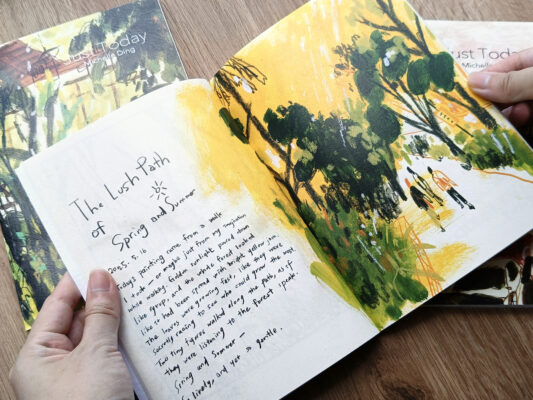 Just Today
by Michelle Ding
ust Today
Michell
The Lush Path
of
Spring and Summer
2025. 5. 16
Today's painting came from a walk
I took, or maybe just from my imagination
while walking. sunlight poured down
like syrup, and the whole forest looked
like it had been with bright yellow jam.
The leaves were growing fast, like they were
secretly racing to see who could grow the most.
Two tiny figures walked along the path, as if
they were listening to the forest speak.
Spring and Summer —
So lively, and yet so gentle.